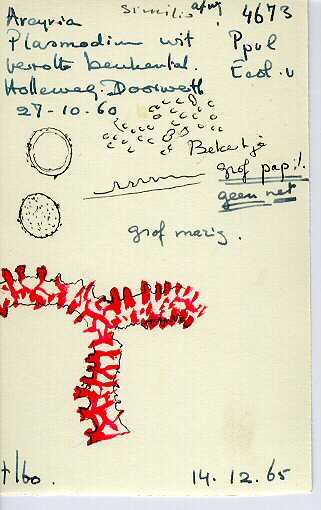 Arcyria similis afm 4673
Plasmodium wit
verrotte beukentak.
Holleweg. Doorwerth
27-10-60
Bekertje
grof pap!
geen net
grof mazig.
14.12.65